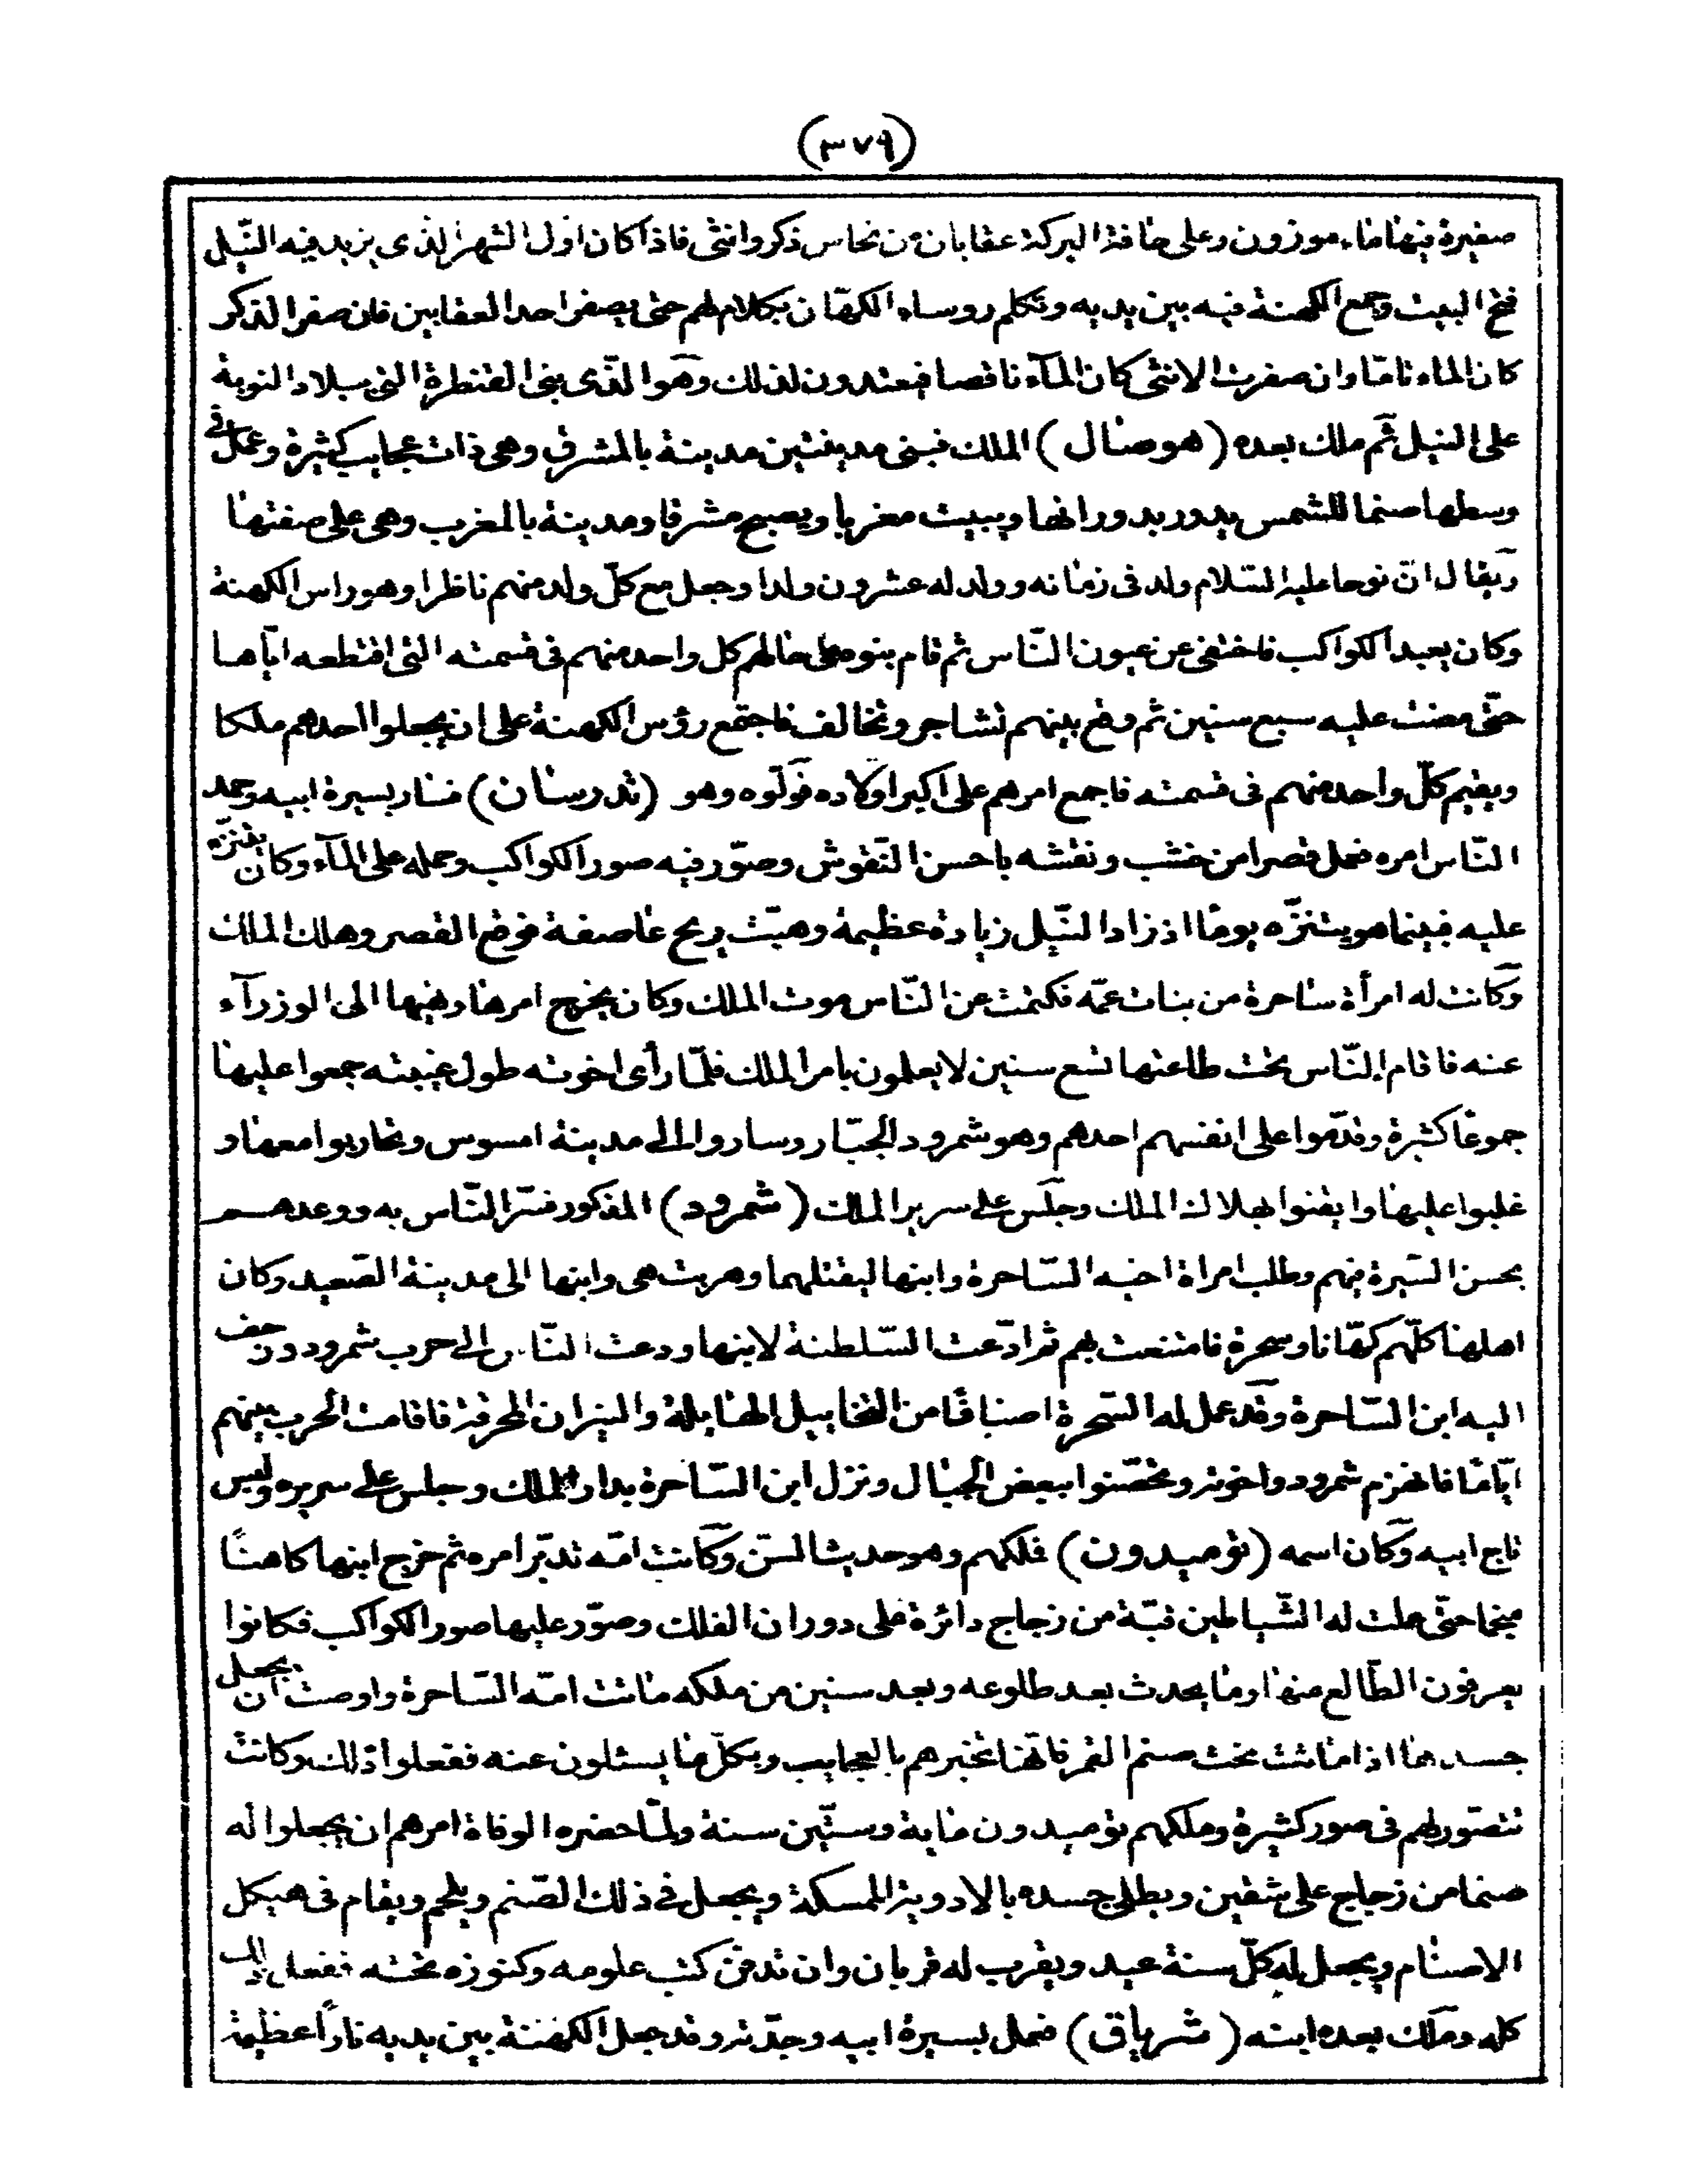 (٣٧٩)
صغيرة فيها ماء موزون وعلى حافة البركة عقابان من نحاس ذكر وانثى فاذا كان اول الشهر الذى يزيد فيه النّيل
فتح البيت وجمع الكهنة فيه بين يديه وتكلم روساء الكهّان بكلام لهم حتى يصفر احد العقابين فان صفر الذكر
كان الماء تامّا وان صفرت الانثى كان المآء ناقصا فيعتدون لذلك وهو الذّى بنى القنطرة التى ببلاد النوبة
على النيل ثم ملك بعده (هوصال) الملك فبنى مدينتين مدينة بالمشرق وهى ذات عجايب كثيرة وعمل فى
وسطها صنما للشمس يدور بدورانها ويبيت مغربا ويصبح مشرقا ومدينة بالمغرب وهى على صفتها
ويقال انّ نوحا عليه السّلام ولد فى زمانه وولد له عشرون ولدا وجعل مع كلّ ولد منهم ناظرا وهو راس الكهنة
وكان يعبد الكواكب فاختفى عن عيون النّاس ثم قام بنوه على حالهم كل واحد منهم فى قسمته التى اقتطعه ايّاها
حتّى مضت عليه سبع سنين ثم وقع بينهم تشاجر وتخالف فاجتمع رؤس الكهنة على ان يجعلوا احدهم ملكا
ويقيم كلّ واحد منهم فى قسمته فاجمع امرهم على اكبر اولاده فولّوه وهو (تدرسان) فسار بسيرة ابيه وحمد
النّاس امره فعمل قصرا من خشب ونقشه باحسن النّقوش وصوّر فيه صور الكواكب وحمله على المآء وكان يتنزّه
عليه فبينما هو يتنزّه يوما اذ زاد النّيل زيادة عظيمة وهبّت ريح عاصفة فوقع القصر وهلك الملك
وكانت له امرأة ساحرة من بنات عمّه فكتمت عن النّاس موت الملك وكان يخرج امرها ونهيها الى الوزرآء
عنه فاقام النّاس تحت طاعتها تسع سنين لا يعلمون بامر الملك فلمّا رأى اخوته طول غيبته جمعوا عليها
جموعا كثيرة وقدّموا على انفسهم احدهم وهو شمرود الجبّار وساروا الى مدينة امسوس وتحاربوا معها و
غلبوا عليها وايقنوا بهلاك الملك وجلس على سرير الملك (شمرود) المذكور فسرّ النّاس به ووعدهم
بحسن السّيرة فيهم وطلب امراة اخيه السّاحرة وابنها ليقتلهما وهربت هى وابنها الى مدينة الصّعيد وكان
اهلها كلّهم كهّانا وسحرة فامتنعت بهم ثم ادّعت السّلطنة لابنها ودعت النّاس الى حرب شمرود وزحف
اليه ابن السّاحرة وقد عمل له السّحرة اصنافًا من التخاييل الهايلة والنيران المحرقة فاقامت الحرب بينهم
ايّاما فانهزم شمرود واخوته وتحصّنوا ببعض الجبال ونزل ابن السّاحرة بدار الملك وجلس على سريره ولبس
تاج ابيه وكان اسمه (توميدون) فملكهم وهو حديث السنّ وكانت امّه تدبّر امره ثم خرج ابنها كاهنًا
منجما حتّى عملت له الشّياطين قبّة من زجاج دائرة على دوران الفلك وصوّر عليها صور الكواكب فكانوا
يعرفون الطّالع منها وما يحدث بعد طلوعه وبعد سنين من ملكه ماتت امّه السّاحرة واوصت ان يجعل
جسدها اذا ماتت تحت صنم القمر فانّها تخبرهم بالعجايب وبكلّ ما يسئلون عنه ففعلوا ذلك وكانت
تتصّور لهم فى صور كثيرة وملكهم توميدون ماية وستّين سنة ولمّا حضره الوفاة امرهم ان يجعلوا له
صنما من زجاج على شقين ويطلى جسده بالادوية الممسكة ويجعل فى ذلك الصّنم ويلحم ويقام فى هيكل
الاصنام ويجعل له كلّ سنة عيد ويقرب له قربان وان تدفن كتب علومه وكنوزه تحته ففعل ذلك
كله وملك بعده ابنه (شرياق) فعمل بسيرة ابيه وجدّته وقد جعل الكهنة بين يديه نارًا عظيمة